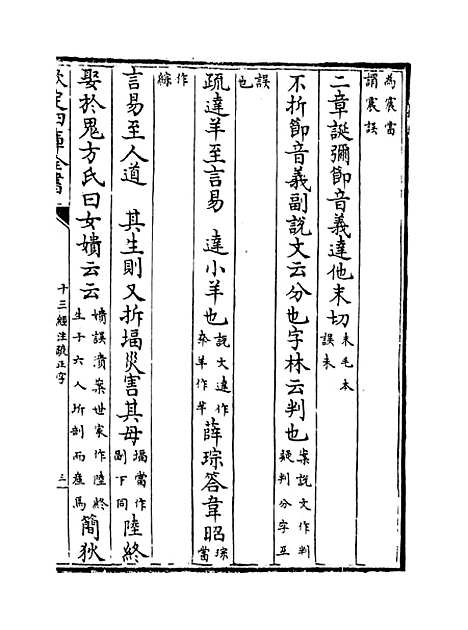 為震當
謂震誤
二章誕彌節音義達他末切
末毛本
誤未
不拆節音義副說文云分也字林云判也
案說文作判
疑判分字互
誤
也
疏達羊至言易　達小羊也
說文達作
羍羊作芉
薛琮答韋昭
琮當
作
綜
言易至人道　其生則又拆堛災害其母
堛當作
副下同
陸終
娶於鬼方氏曰女嬇云云
嬇誤潰案世家作陸終
生子六人坼剖而產焉
簡狄
欽定四庫全書
十三經注疏正字
三